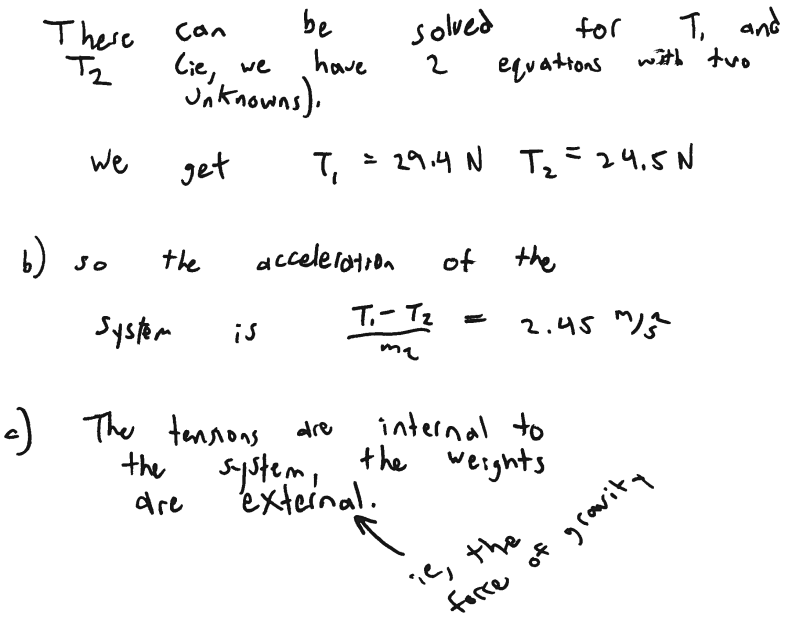 These can be solved for T₁ and
T₂ (ie, we have 2 equations with two
unknowns).
We get T₁ = 29.4 N T₂ = 24.5 N
b) so the acceleration of the
system is (T₁ - T₂)/m₂ = 2.45 m/s²
c) The tensions are internal to
the system, the weights
are external.
ie, the
force of gravity